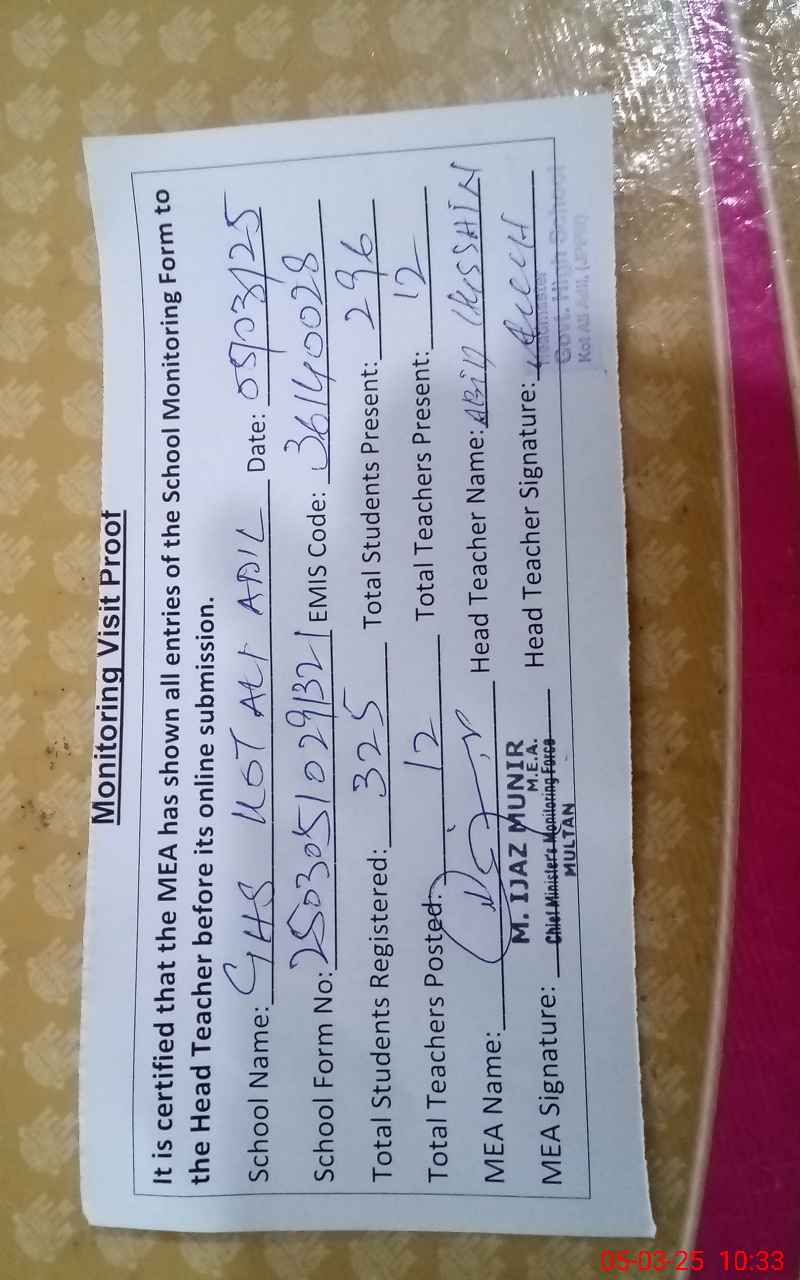 Monitoring Visit Proof
It is certified that the MEA has shown all entries of the School Monitoring Form to
the Head Teacher before its online submission.
School Name: GHS KOT ALI ADIL Date: 05/03/25
School Form No: 25030510291321 EMIS Code: 36140028
Total Students Registered: 325 Total Students Present: 296
Total Teachers Posted: 12 Total Teachers Present: 12
MEA Name: Head Teacher Name: ABID HUSSAIN
M. IJAZ MUNIR
M.E.A.
MEA Signature: Chief Minister's Monitoring Force Head Teacher Signature:
MULTAN
Headmaster
Govt. High School
Kot Ali Adil
05-03-25 10:33